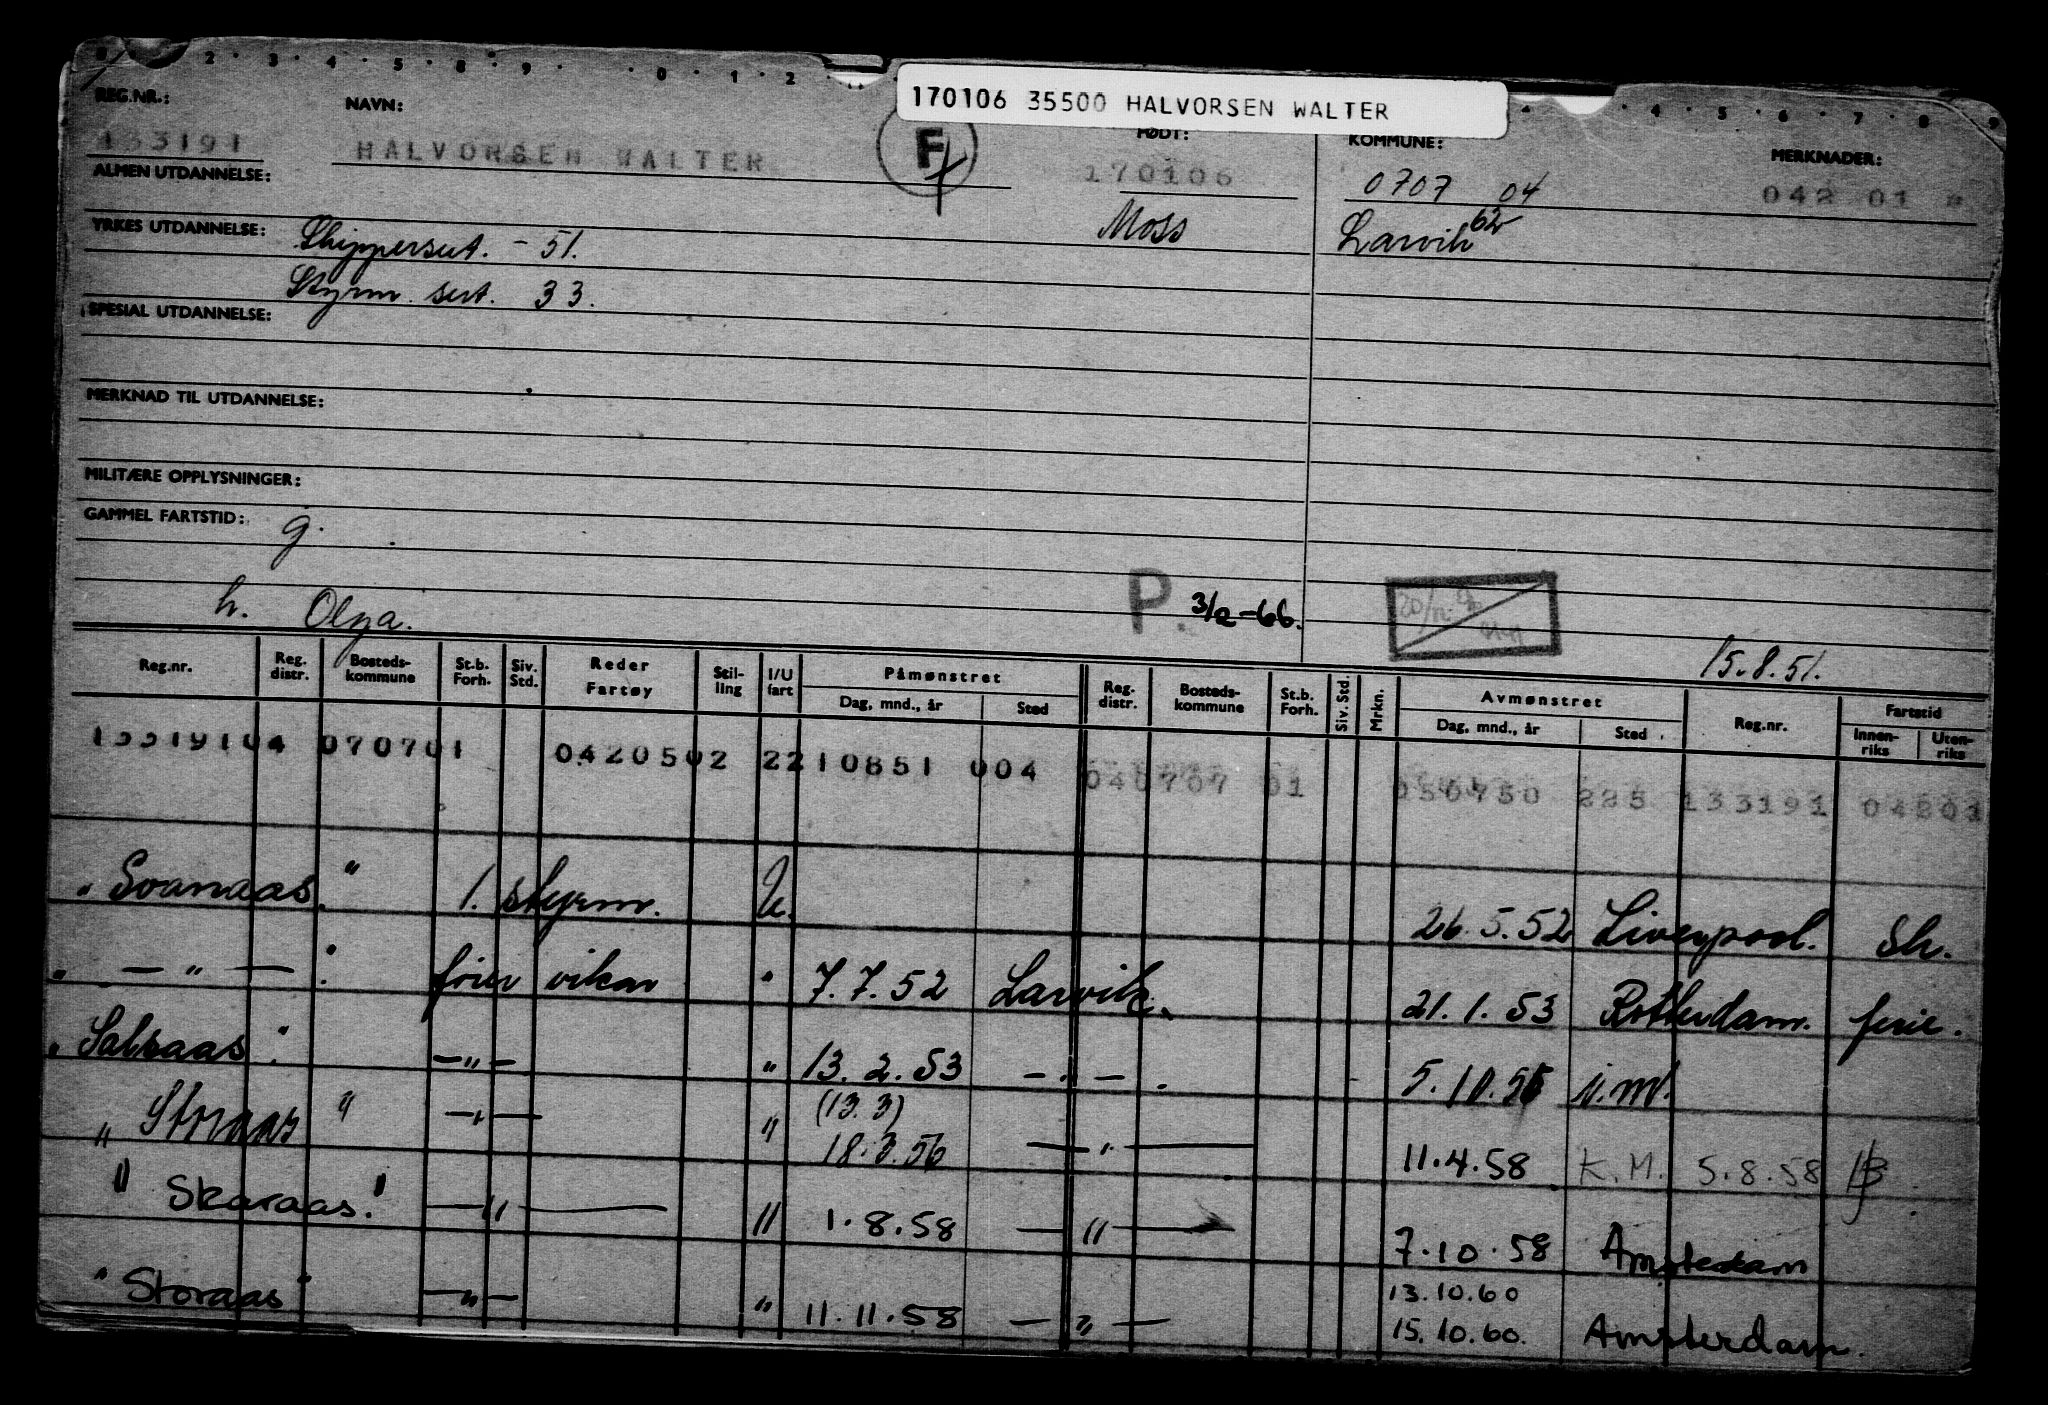 170106 35500 HALVORSEN WALTER
REG.NR.: NAVN: FØDT: KOMMUNE: MERKNADER:
133191 HALVORSEN WALTER F 170106 0707 04 042 01
ALMEN UTDANNELSE:
Moss Larvik 62
YRKES UTDANNELSE: Skippersert. - 51.
Styrm. sert. 33.
SPESIAL UTDANNELSE:
MERKNAD TIL UTDANNELSE:
MILITÆRE OPPLYSNINGER:
GAMMEL FARTSTID: g.
h. Olga. P. 3/2-66.
15.8.51.
Reg.nr. Reg. distr. Bosteds-kommune St.b. Forh. Siv. Std. Reder Fartøy Stil-ling I/U fart Påmønstret Dag, mnd., år Sted Reg. distr. Bosteds-kommune St.b. Forh. Siv. Std. Mrkn. Avmønstret Dag, mnd., år Sted Reg.nr. Fartstid Innen-riks Uten-riks
13319104 070701 0420502 2210851 004 040707 01 050750 225 133191 04201
"Svanaas." 1. styrm. U. 26.5.52 Liverpool. Sk.
" — " — " förer vikar " 7.7.52 Larvik. 21.1.53 Rotterdam. ferie.
"Salraas" — " — " 13.2.53 — " — 5.10.55 v.m.
(13.3)
"Storaas" — " — " 18.3.56 — " — 11.4.58 K.M. 5.8.58
"Skaraas." — " — " 1.8.58 — " — 7.10.58 Amsterdam
13.10.60
"Storaas" — " — " 11.11.58 — " — 15.10.60. Amsterdam.